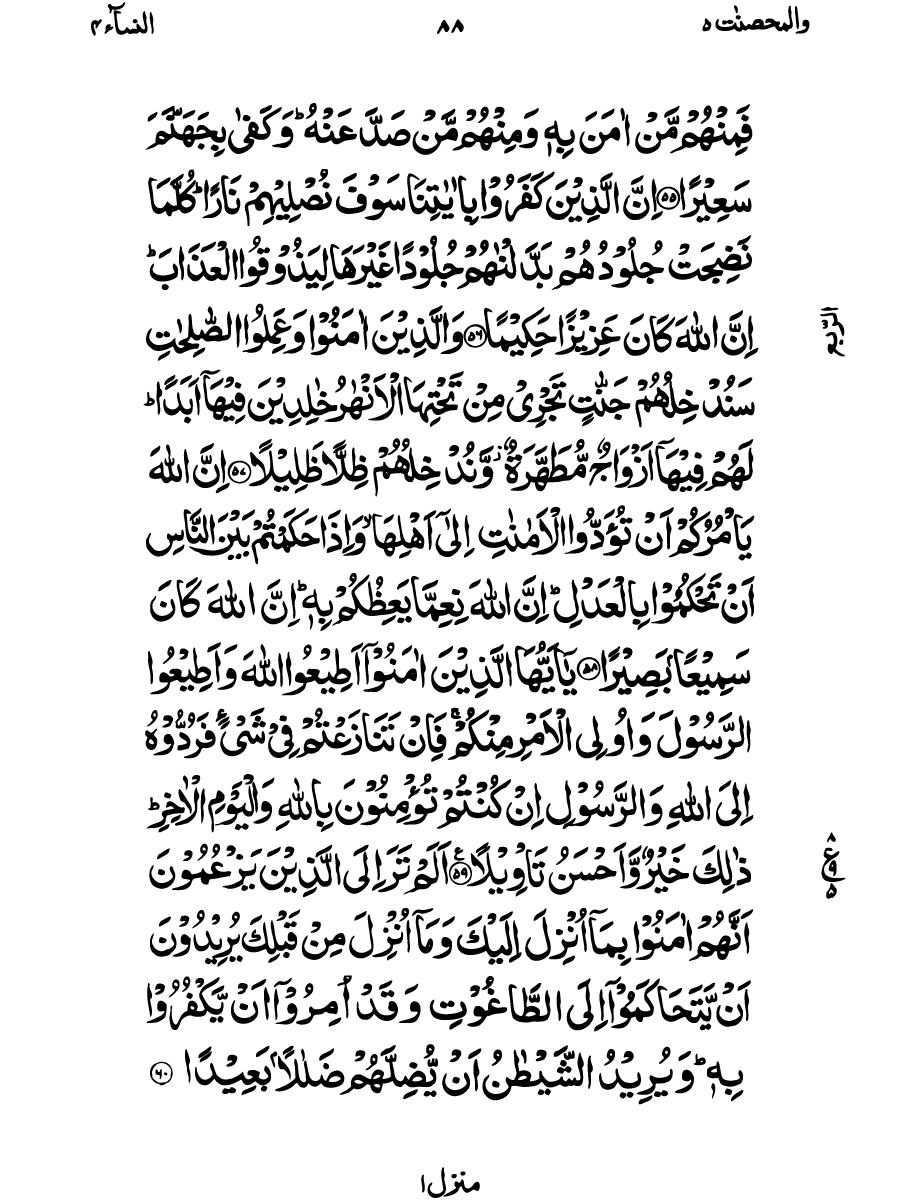 والمحصنٰت ۵
۸۸
النسآء ۴
فَمِنْهُمْ مَّنْ اٰمَنَ بِهٖ وَمِنْهُمْ مَّنْ صَدَّ عَنْهُ ؕ وَكَفٰى بِجَهَنَّمَ
سَعِيْرًا ﴿۵۵﴾ اِنَّ الَّذِيْنَ كَفَرُوْا بِاٰيٰتِنَا سَوْفَ نُصْلِيْهِمْ نَارًا ؕ كُلَّمَا
نَضِجَتْ جُلُوْدُهُمْ بَدَّلْنٰهُمْ جُلُوْدًا غَيْرَهَا لِيَذُوْقُوا الْعَذَابَ ؕ
اِنَّ اللّٰهَ كَانَ عَزِيْزًا حَكِيْمًا ﴿۵۶﴾ وَالَّذِيْنَ اٰمَنُوْا وَعَمِلُوا الصّٰلِحٰتِ
الربع
سَنُدْخِلُهُمْ جَنّٰتٍ تَجْرِىْ مِنْ تَحْتِهَا الْاَنْهٰرُ خٰلِدِيْنَ فِيْهَاۤ اَبَدًا ؕ
لَهُمْ فِيْهَاۤ اَزْوَاجٌ مُّطَهَّرَةٌ ؗ وَّنُدْخِلُهُمْ ظِلًّا ظَلِيْلًا ﴿۵۷﴾ اِنَّ اللّٰهَ
يَاْمُرُكُمْ اَنْ تُؤَدُّوا الْاَمٰنٰتِ اِلٰٓى اَهْلِهَا ۙ وَاِذَا حَكَمْتُمْ بَيْنَ النَّاسِ
اَنْ تَحْكُمُوْا بِالْعَدْلِ ؕ اِنَّ اللّٰهَ نِعِمَّا يَعِظُكُمْ بِهٖ ؕ اِنَّ اللّٰهَ كَانَ
سَمِيْعًۢا بَصِيْرًا ﴿۵۸﴾ يٰۤاَيُّهَا الَّذِيْنَ اٰمَنُوْۤا اَطِيْعُوا اللّٰهَ وَاَطِيْعُوا
الرَّسُوْلَ وَاُولِى الْاَمْرِ مِنْكُمْ ۚ فَاِنْ تَنَازَعْتُمْ فِىْ شَىْءٍ فَرُدُّوْهُ
اِلَى اللّٰهِ وَالرَّسُوْلِ اِنْ كُنْتُمْ تُؤْمِنُوْنَ بِاللّٰهِ وَالْيَوْمِ الْاٰخِرِ ؕ
ذٰلِكَ خَيْرٌ وَّاَحْسَنُ تَاْوِيْلًا ﴿۵۹﴾ اَلَمْ تَرَ اِلَى الَّذِيْنَ يَزْعُمُوْنَ
۸ ع ۹ ۵
اَنَّهُمْ اٰمَنُوْا بِمَاۤ اُنْزِلَ اِلَيْكَ وَمَاۤ اُنْزِلَ مِنْ قَبْلِكَ يُرِيْدُوْنَ
اَنْ يَّتَحَاكَمُوْۤا اِلَى الطَّاغُوْتِ وَقَدْ اُمِرُوْۤا اَنْ يَّكْفُرُوْا
بِهٖ ؕ وَيُرِيْدُ الشَّيْطٰنُ اَنْ يُّضِلَّهُمْ ضَلٰلًۢا بَعِيْدًا ﴿۶۰﴾
منزل ۱